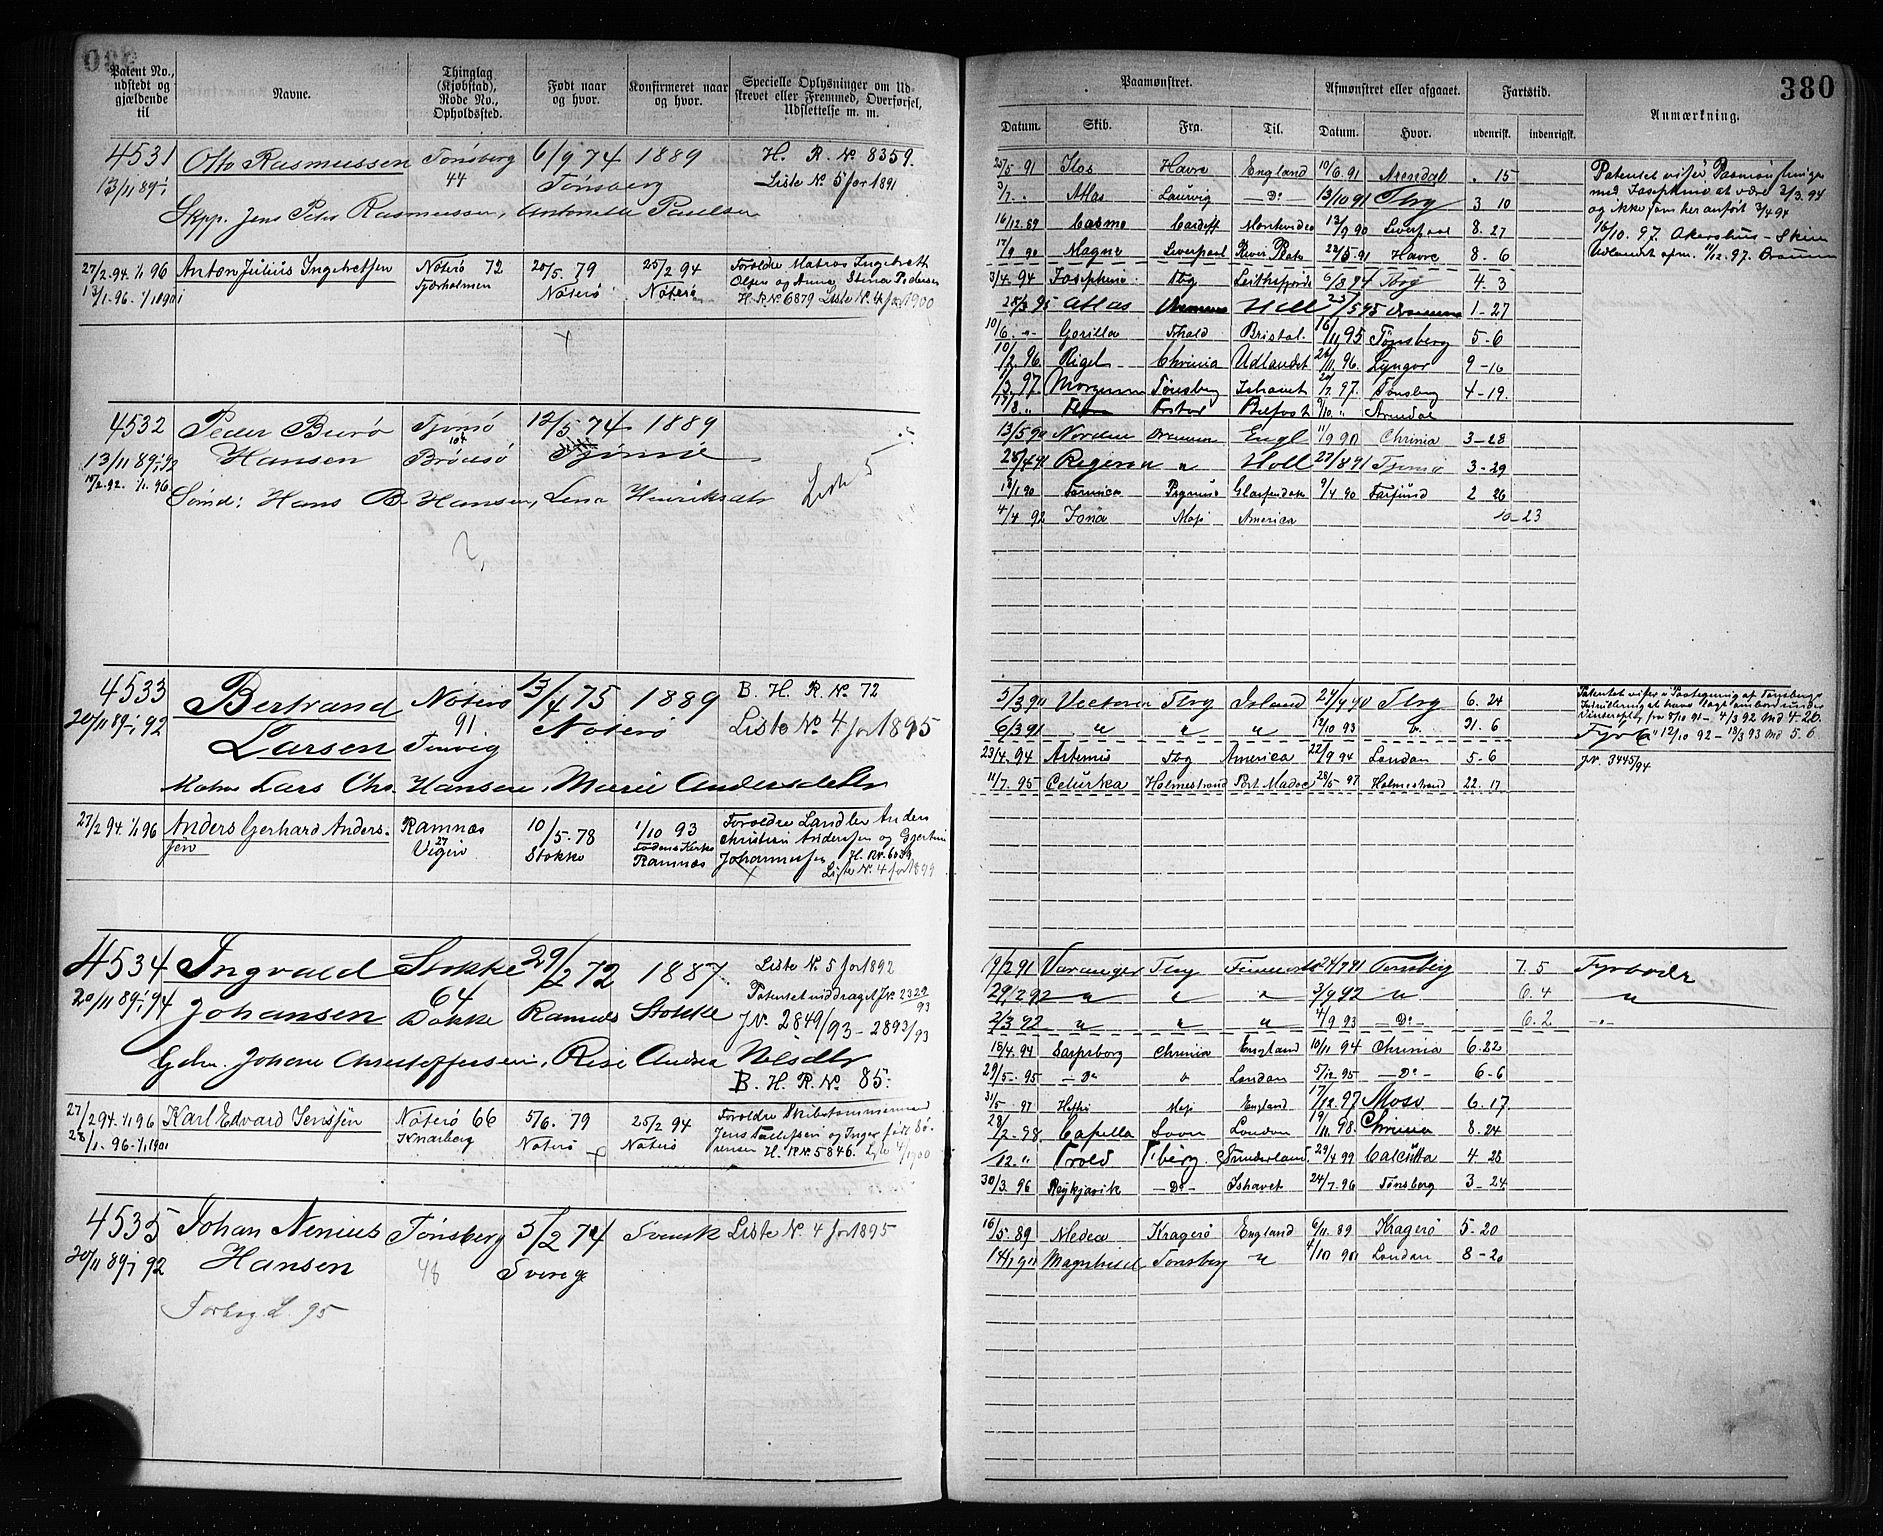 380
Patent No., udstedt og gjældende til
Navne.
Thinglag (Kjøbstad), Rode No., Opholdssted.
Født naar og hvor.
Konfirmeret naar og hvor.
Specielle Oplysninger om Udskrevet eller Fremmed, Overførsel, Udslettelse m. m.
4531 Otto Rasmussen Tønsberg 6/9 74 1889 H. R. No 8359.
13/11 89 44 Tønsberg Liste No 5 for 1891
Skpp. Jens Peter Rasmussen, Antonette Paulsen
27/2 94. 1/1 96 Anton Julius Ingebretsen Nøterø 72 20/5. 79 25/2 94 Forældre Matros Ingebreth
13/1-96. 1/1 1901 Tjærholmen Nøterø Nøterø Olsen og Anna Stina Pedersen
H. R No 6879 Liste No 4 for 1900
4532 Peder Burø Tjømø 12/5 74 1889
13/11 89 - 1/1 92 Hansen Brøtsø Tjømø Liste 5
1/1. 96
Sømd: Hans B Hansen, Lena Henriksdtr
4533 Bertrand Nøterø 13/4 75 1889 B. H. R. No 72
20/11 89 - 1/1 92 Larsen 91 Nøterø Liste No 4 for 1895
Lars Chr. Hansen, Marie Andersdatter
27/2 94. 1/1 96 Anders Gerhard Anders- Ramnæs 10/5. 78 1/10 93 Forældre Landlev Anders
sen 27 Stokke Fodens Kirke Christian Anderssen og
Ramnæs Johannessen H. No. 6039
Liste No. 4 for 1899
4534 Ingvald Stokke 29/2 72 1887 Liste No. 5 for 1892
20/11 89 - 1/1 94 Johansen 64 Ramnæs Stokke Patentet inddraget J No 2329/93
Bakke J No. 2849/93 - 2893/93
Johan Christoffersen,
B. H. R. No 85.
27/2 94. 1/1 96 Karl Edvard Jenssen Nøterø 66 5/6. 79 25/2 94 Forældre Skibstømmermand
28/1. 96 - 1/1 1901 Knarberg Nøterø Nøterø Jens og Inger
H. R No. 5846. 4/1900
4535 Johan Nenius Tønsberg 5/2 74 Svensk Liste No. 4 for 1895
20/11 89 - 1/1 92 Hansen 46 Sverige
Forbig. L. 95
Paamønstret. Afmønstret eller afgaaet. Fartstid. Anmærkning.
Datum. Skib. Fra. Til. Datum. Hvor. udenrigsk. indenrigsk.
25/5 91 Ilos Havre England 10/6. 91 Arendal . 15
Atlas Laurvig - Do - 13/10 91 Tbrg 3 10
16/12. 89 Cardiff Montevideo 13/9 90 Liverpool 8. 27
17/9 90 Magne Liverpool River Plate 23/5 91 Havre 8. 6
3/4. 94 Josephine Tbg 6/8 94 Tbrg 4. 3
28/3 95 Atlas Drammen Hull 23/5 95 Drammen 1-27
10/6. -"- Gorilla Fhald Bristol. 16/11 95 Tønsberg 5-6
10/2. 96. Rigel Chrinia Udlandet 26/11. 96. Lyngør 9-16
1/3. 97. Morgenen Tønsberg Ishavet 20/7. 97. Tønsberg 4-19.
17/8. " Belfast 9/10. " Arendal
Patentet viser Paamønstringen
med Josephine at være 2/3. 94
og ikke som her anført 3/4 94
16/10. 97. Akershus - Skien
Udlandet afm. 11/12. 97. Drammen
13/5 90 Norden Drammen Engl 11/9 90 Chrinia 3-28
28/4 91 " Holl 27/8 91 Tjømø 3-29
18/1 90 9/4 90 Farsund 2 26
4/4 92 Iona America 10-23
5/3 90 Vectoria Tbrg Island 24/9 90 Tbrg 6. 24
6/3 91 " " " 12/10 93 31. 6
23/4. 94 Artemis Tbg America 22/9 94 London 5-6
11/7. 95 Ceturka Holmestrand Port Madoc 28/5 97 Holmestrand 22. 17
Vinteroplag fra 8/10 91 - 4/3 92 Md 4-26.
12/10 92 - 13/3 93 Md 5. 6
J No. 3445/94
19/2 91 Varanger Tbrg 24/9 91 Tønsberg 7. 5
29/2 92 " " " 3/9 92 " 6. 4 "
2/3 92 " " " 4/9 93 - Do - 6. 2 -"-
15/4. 94 Sarpsborg Chrinia England 10/11 94 Chrinia 6. 22
29/5. 95 - Do " London 5/12 95 - Do - 6-6
31/5. 97 England 17/12. 97 Moss 6. 17
28/2. 98. Capella London 19/11. 98. Chrinia 8. 24
/12. " Trold Tberg. Sunderland. 29/4 99 Calcutta 4. 28
30/3. 96 Reykjavik - Do - Ishavet 24/7. 96 Tønsberg 3-24
16/5. 89 Medea Kragerø England 6/11. 89 Kragerø 5-20
14/1 90 Tønsberg " 4/10 90 London 8-20